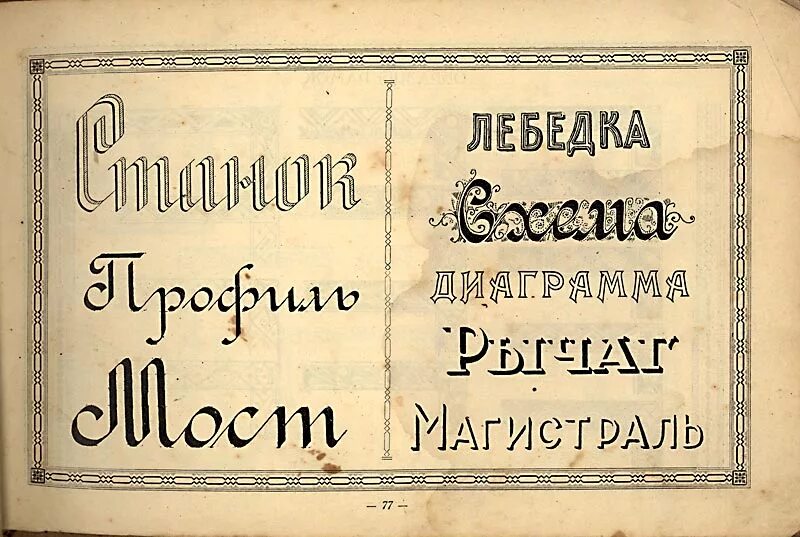 Станок
Профиль
Мост
ЛЕБЕДКА
Схема
ДИАГРАММА
РЫЧАГ
МАГИСТРАЛЬ
— 77 —